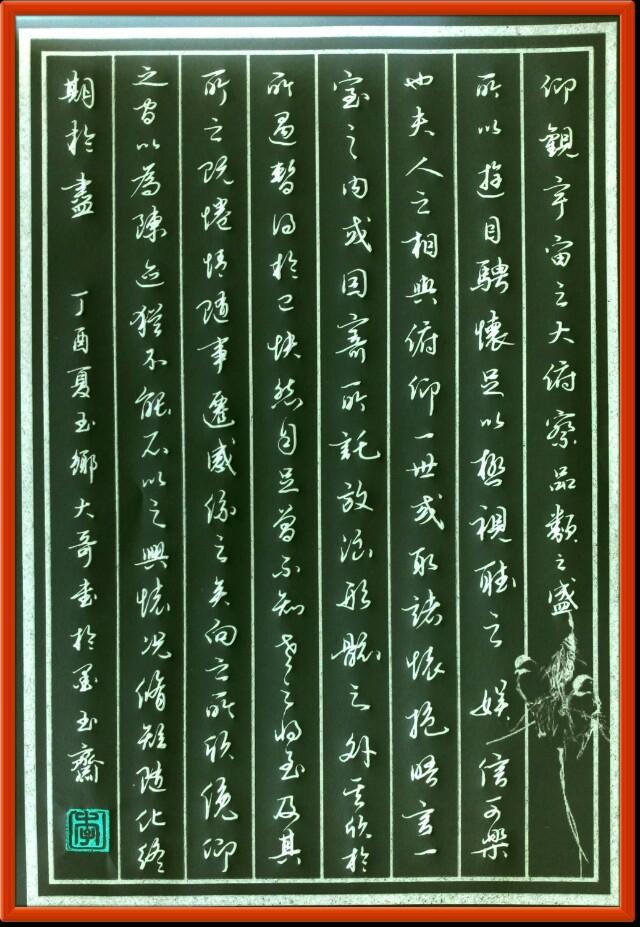 仰觀宇宙之大俯察品類之盛
所以遊目騁懷足以極視聽之娛信可樂
也夫人之相與俯仰一世或取諸懷抱晤言一
室之內或因寄所託放浪形骸之外其欣於
所遇暫得於己快然自足曾不知老之將至及其
所之既惓情隨事遷感係之矣向之所欣俛仰
之間以為陳迹猶不能不以之興懷況脩短隨化終
期於盡 丁酉夏玉鄉大哥書於墨玉齋